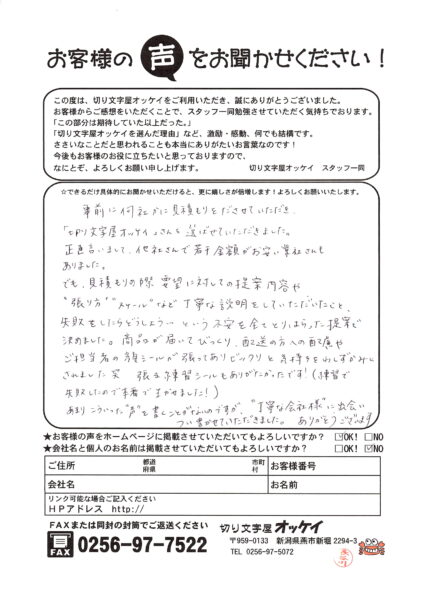 お客様の声をお聞かせください！
この度は、切り文字屋オッケイをご利用いただき、誠にありがとうございました。
お客様からご感想をいただくことで、スタッフ一同勉強させていただく気持ちでおります。
「この部分は期待していた以上だった。」
「切り文字屋オッケイを選んだ理由」など、激励・感動、何でも結構です。
ささいなことだと思われることも本当にありがたいお言葉なのです！
今後もお客様のお役に立ちたいと思っておりますので、
なにとぞ、よろしくお願い申し上げます。 切り文字屋オッケイ スタッフ一同
☆できるだけ具体的にお聞かせいただけると、更に嬉しさが倍増します！よろしくお願いいたします。
事前に何社かに見積もりをださせていただき、
「切り文字屋オッケイ」さんを選ばせていただきました。
正直言いまして、他社さんで若干金額がお安い業社さんも
ありました。
でも、見積もりの際、要望に対しての提案内容や
"張り方" "スケール" など丁寧な説明をしていただいたこと、
失敗をしたらどうしよう… という不安を全てとりはらった提案で
決めました。商品が届いてびっくり、配送の方への配慮や
ご担当者の顔シールが張ってありビックリと気持ちをわしずかみに
されました 笑 張る練習シールもありがたかったです！（練習で
失敗したので本番で上手く
あまりこういった"声"を書くことがないのですが、"丁寧な会社様"に出会い
つい書かせていただきました。 ありがとうございます
★お客様の声をホームページに掲載させていただいてもよろしいですか？ ☑OK! □NO
★会社名と個人のお名前も掲載させていただいてもよろしいですか？ □OK! ☑NO
ご住所 都道府県 市町村 お客様番号
会社名 お名前
リンク可能な場合ご記入ください
ＨＰアドレス http://
ＦＡＸまたは同封の封筒でご返送ください
FAX 0256-97-7522
切り文字屋オッケイ
〒959-0133 新潟県燕市新堀 2294-3
TEL 0256-97-5072